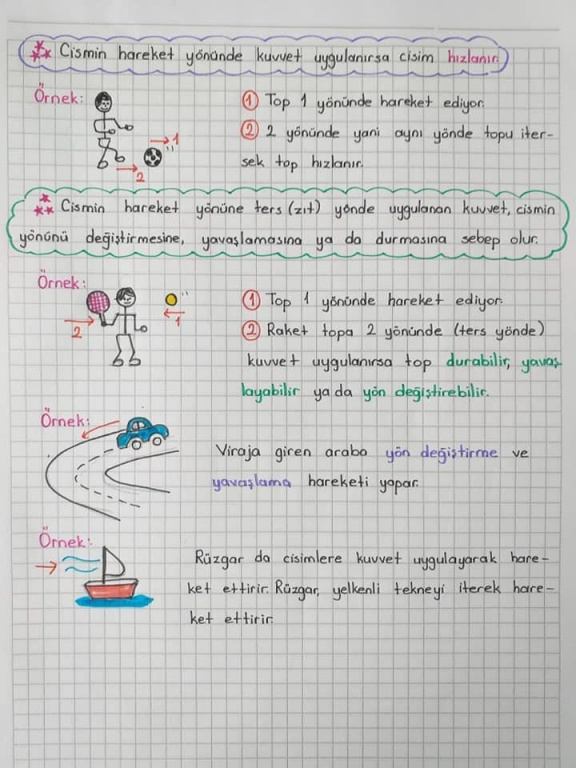 Cismin hareket yönünde kuvvet uygulanırsa cisim hızlanır.
Örnek:
1 Top 1 yönünde hareket ediyor.
2 2 yönünde yani aynı yönde topu iter-
sek top hızlanır.
1
2
Cismin hareket yönüne ters (zıt) yönde uygulanan kuvvet, cismin
yönünü değiştirmesine, yavaşlamasına ya da durmasına sebep olur.
Örnek:
1 Top 1 yönünde hareket ediyor.
2 Raket topa 2 yönünde (ters yönde)
kuvvet uygulanırsa top durabilir, yavaş
layabilir ya da yön değiştirebilir.
2
1
Örnek:
Viraja giren araba yön değiştirme ve
yavaşlama hareketi yapar.
Örnek:
Rüzgar da cisimlere kuvvet uygulayarak hare-
ket ettirir. Rüzgar, yelkenli tekneyi iterek hare-
ket ettirir.